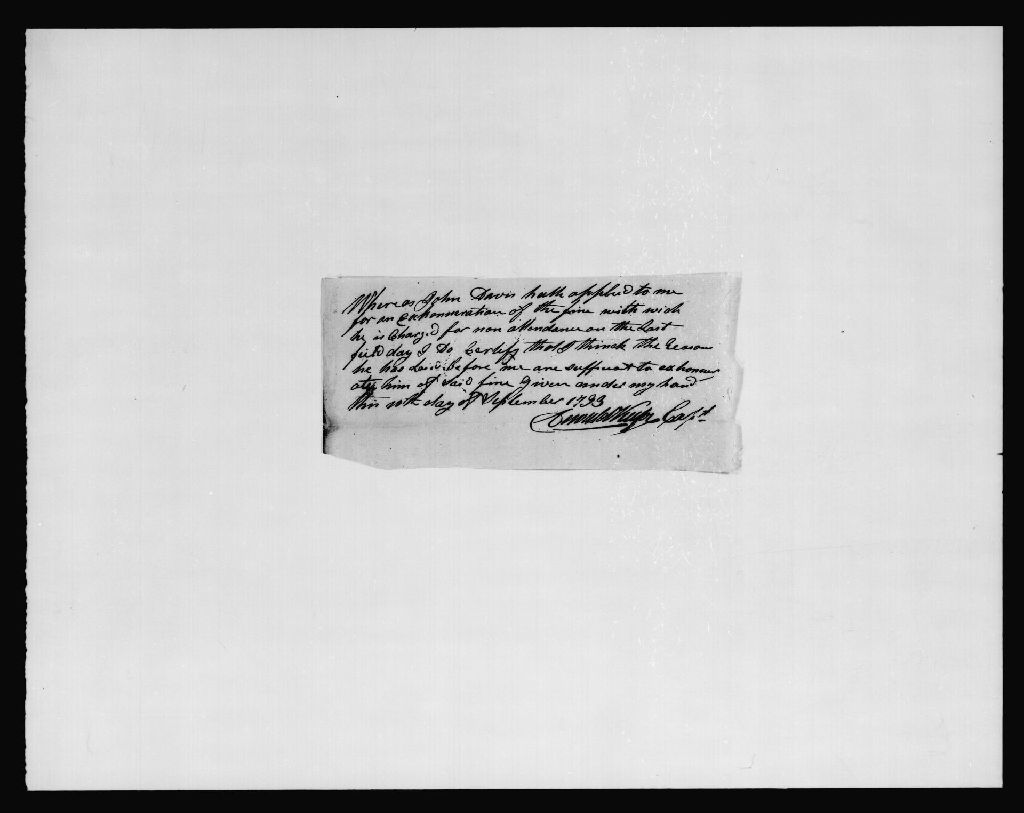 Whereas John Davis hath applied to me
for an Exhonneration of the fine with wich
he is Charged for non attendance on the last
field day I Do Certify that I think the Reason
he has laid before me are suffient to exhoner
ate him of said fine Given under my hand
this 10th day of September 1793
Capt